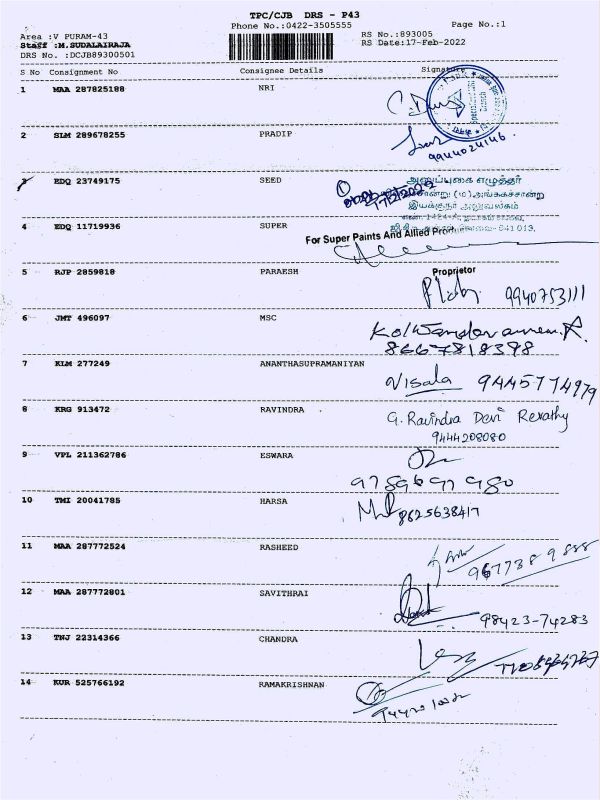 TPC/CJB DRS - P43
Phone No.:0422-3505555 Page No.:1
Area :V PURAM-43 RS No.:893005
Staff :M.SUDALAIRAJA RS Date:17-Feb-2022
DRS No. :DCJB89300501
S No Consignment No Consignee Details Signature
1 MAA 287825188 NRI
2 SLM 289678255 PRADIP
9944024146
3 EDQ 23749175 SEED
அனுப்புகை எழுத்தர்
இயக்குநர் அலுவலகம்
4 EDQ 11719936 SUPER
For Super Paints And Allied Products
Proprietor
5 RJP 2859818 PARAESH
9940753111
6 JMT 496097 MSC
8667818398
7 KLM 277249 ANANTHASUPRAMANIYAN
Visala 9445774979
8 KRG 913472 RAVINDRA
G. Ravindra Devi Revathy
9444208080
9 VPL 211362786 ESWARA
9789697980
10 TMI 20041785 HARSA
8625638417
11 MAA 287772524 RASHEED
9677389888
12 MAA 287772801 SAVITHRAI
98423-74283
13 TNJ 22314366 CHANDRA
14 KUR 525766192 RAMAKRISHNAN